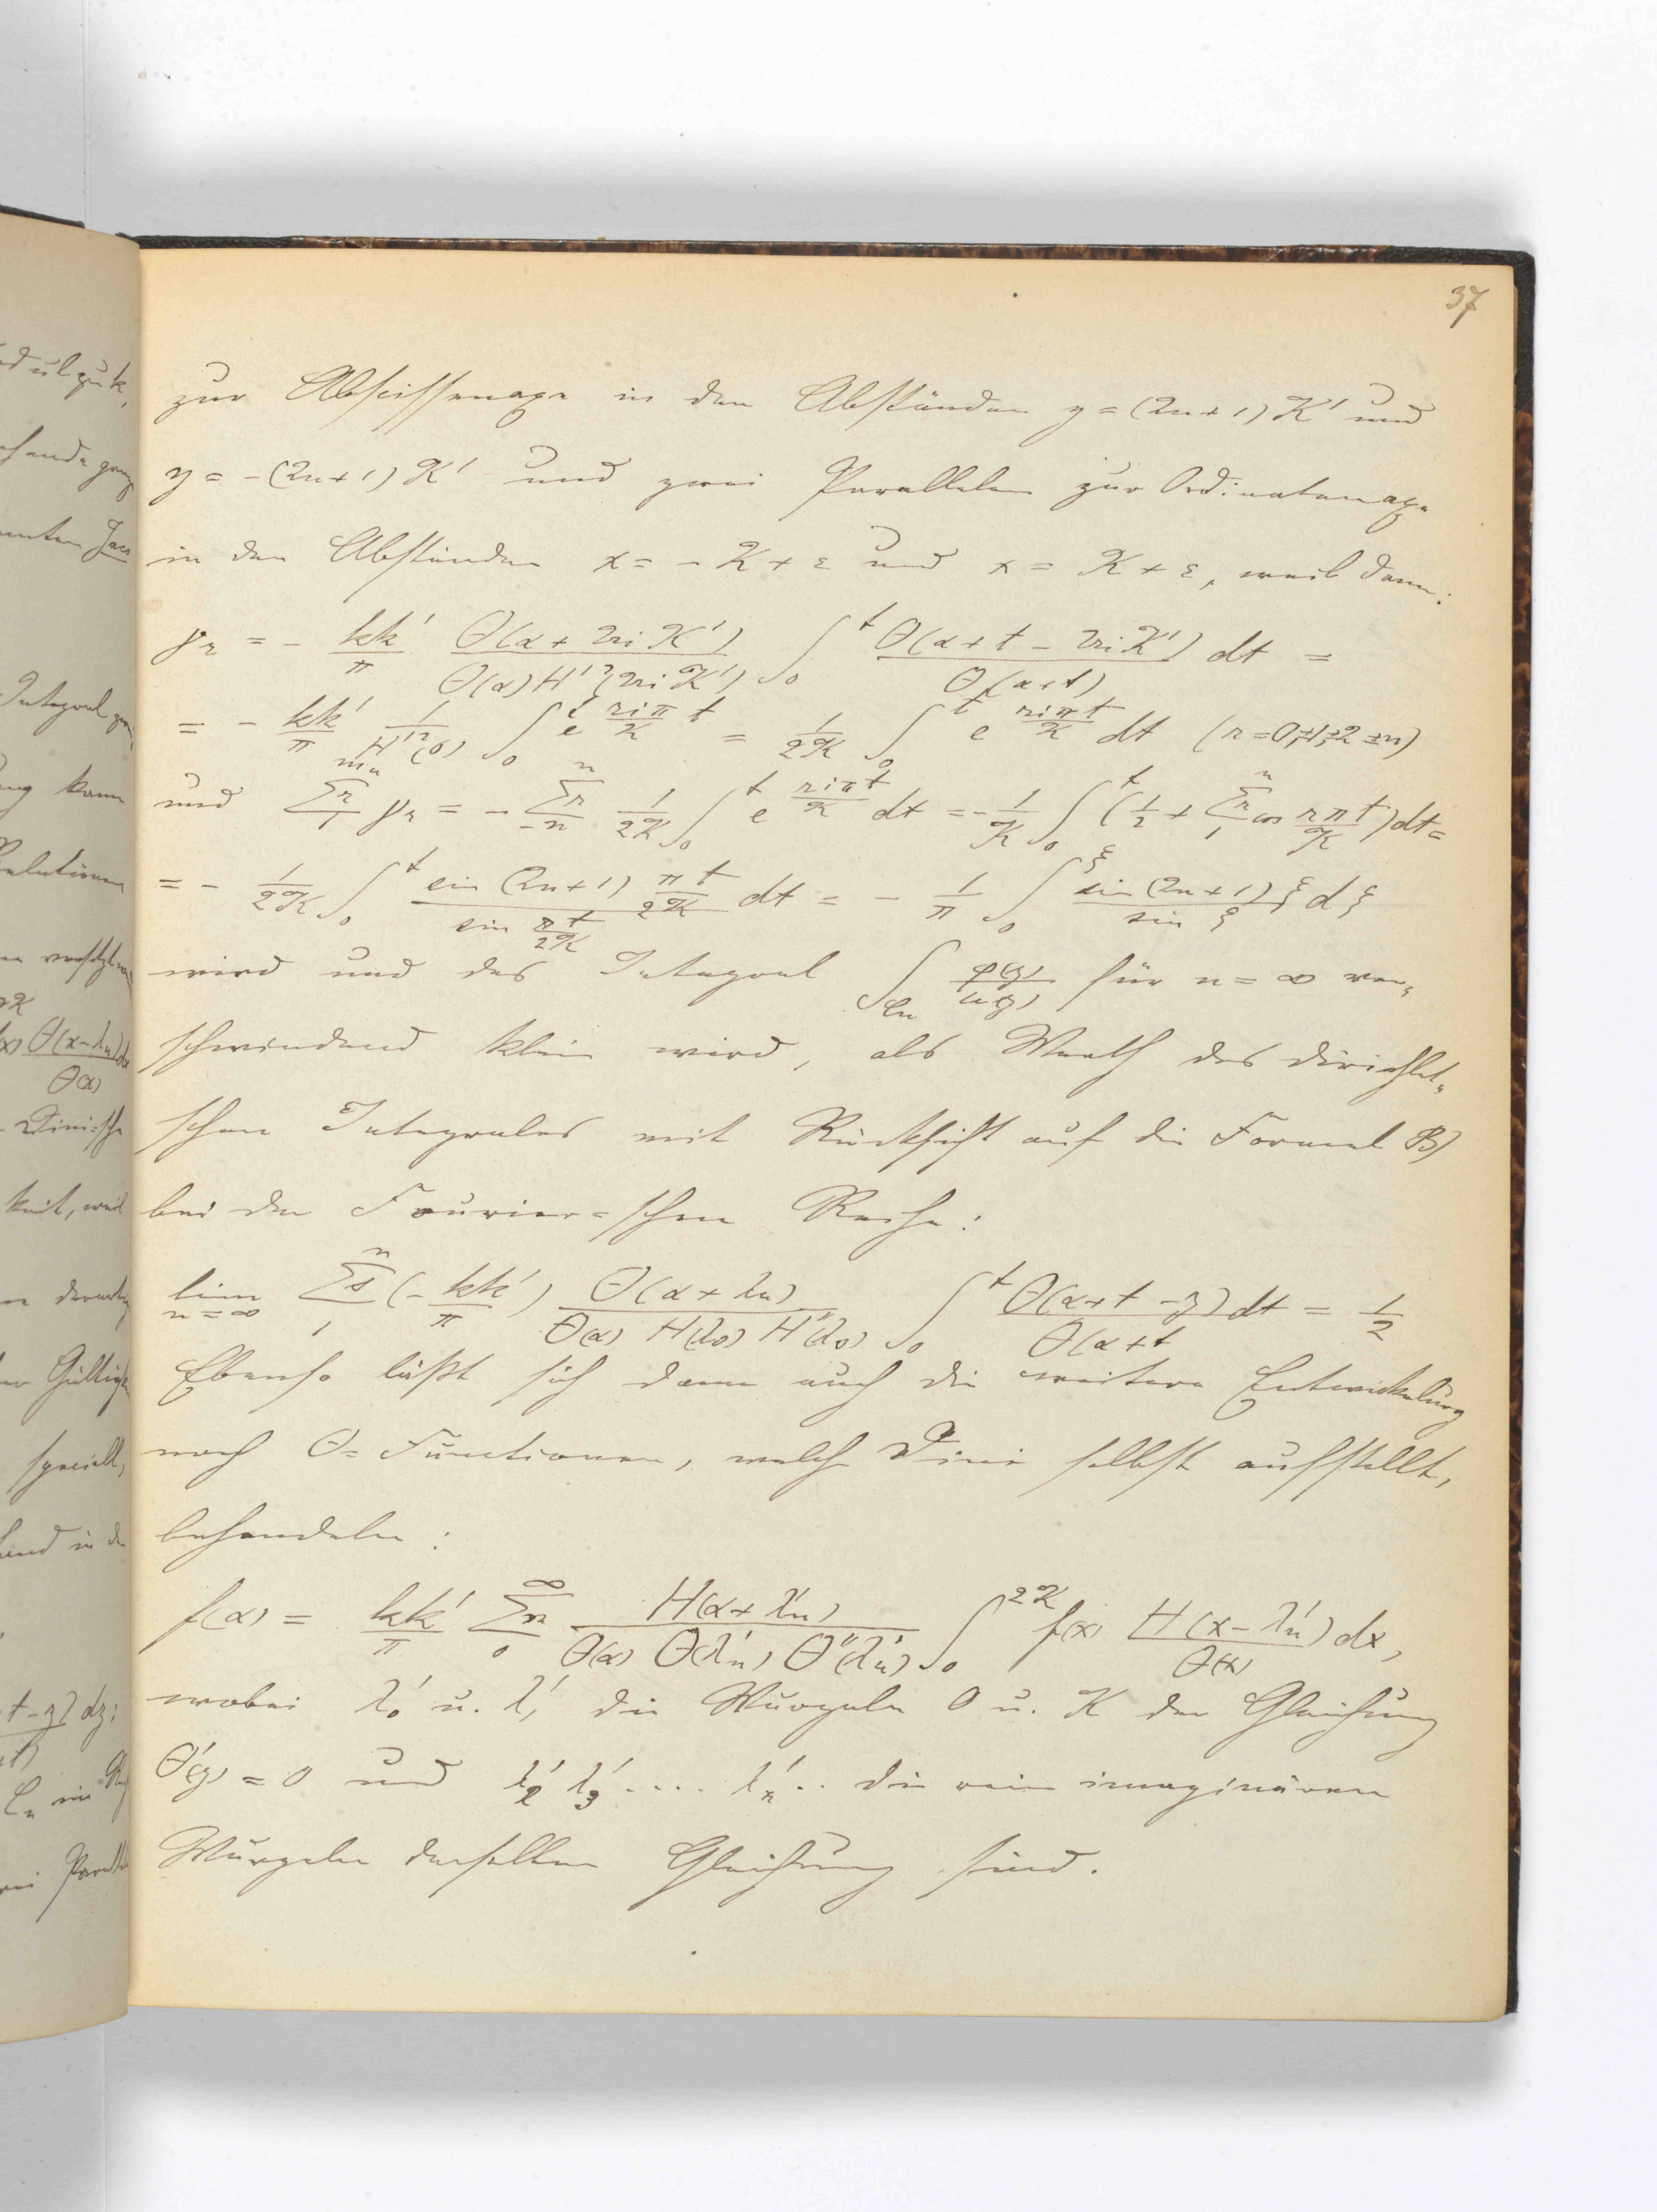 37
zur Abscissenaxe in den Abständen y = (2n+1) K' und
y = -(2n+1) K' und zwei Parallelen zur Ordinatenaxe
in den Abständen x = - K + ε und x = K + ε, weil dann:
γ_r = - kk'/π Θ(α + 2riK')/(Θ(α) H'²(2riK')) ∫_0^t Θ(α+t - 2riK')/Θ(α+t) dt =
= - kk'/π 1/H'²(0) ∫_0^t e^{riπt/K} = 1/2K ∫_0^t e^{riπt/K} dt (r = 0, ±1, ±2 ±n)
und Σ_1^{m_n} γ_r = - Σ_{-n}^n 1/2K ∫_0^t e^{riπt/K} dt = - 1/K ∫_0^t (1/2 + Σ_1^n cos rπt/K) dt =
= - 1/2K ∫_0^t sin (2n+1) πt/2K / sin πt/2K dt = - 1/π ∫_0^ξ sin (2n+1) ξ / sin ξ dξ
wird und das Integral ∫_{C_n} φ(z)/u(z) für n = ∞ ver-
schwindend klein wird, als Werth des Dirichlet-
schen Integrales mit Rücksicht auf die Formel B)
bei der Fourier-schen Reihe:
lim_{n=∞} Σ_1^n (- kk'/π) Θ(α + λ_n)/(Θ(α) H(λ_s) H''(λ_s)) ∫_0^t Θ(α+t - z) dt/Θ(α+t = 1/2
Ebenso läßt sich dann auch die weitere Entwickelung
nach Θ-Functionen, welche Dini selbst aufstellt,
behandeln:
f(α) = kk'/π Σ_0^∞ H(α + λ'_n)/(Θ(α) Θ(λ'_n) Θ''(λ'_n)) ∫_0^{2K} f(x) H(x - λ'_n)/Θ(x) dx,
wobei λ'_0 u. λ'_1 die Wurzeln 0 u. K der Gleichung
Θ'(z) = 0 und λ'_2 λ'_3 .... λ'_n .. die rein imaginären
Wurzeln derselben Gleichung sind.